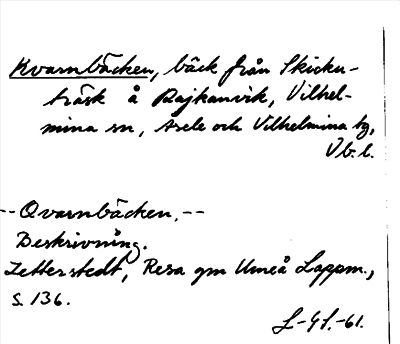 Kvarnbäcken, bäck från Skicku-
träsk å Rajkanvik, Vilhel-
mina sn, Åsele och Vilhelmina tg,
Vb. l.
--Qvarnbäcken,--
Beskrivning.
Zetterstedt, Resa gm Umeå Lappm.,
s. 136.